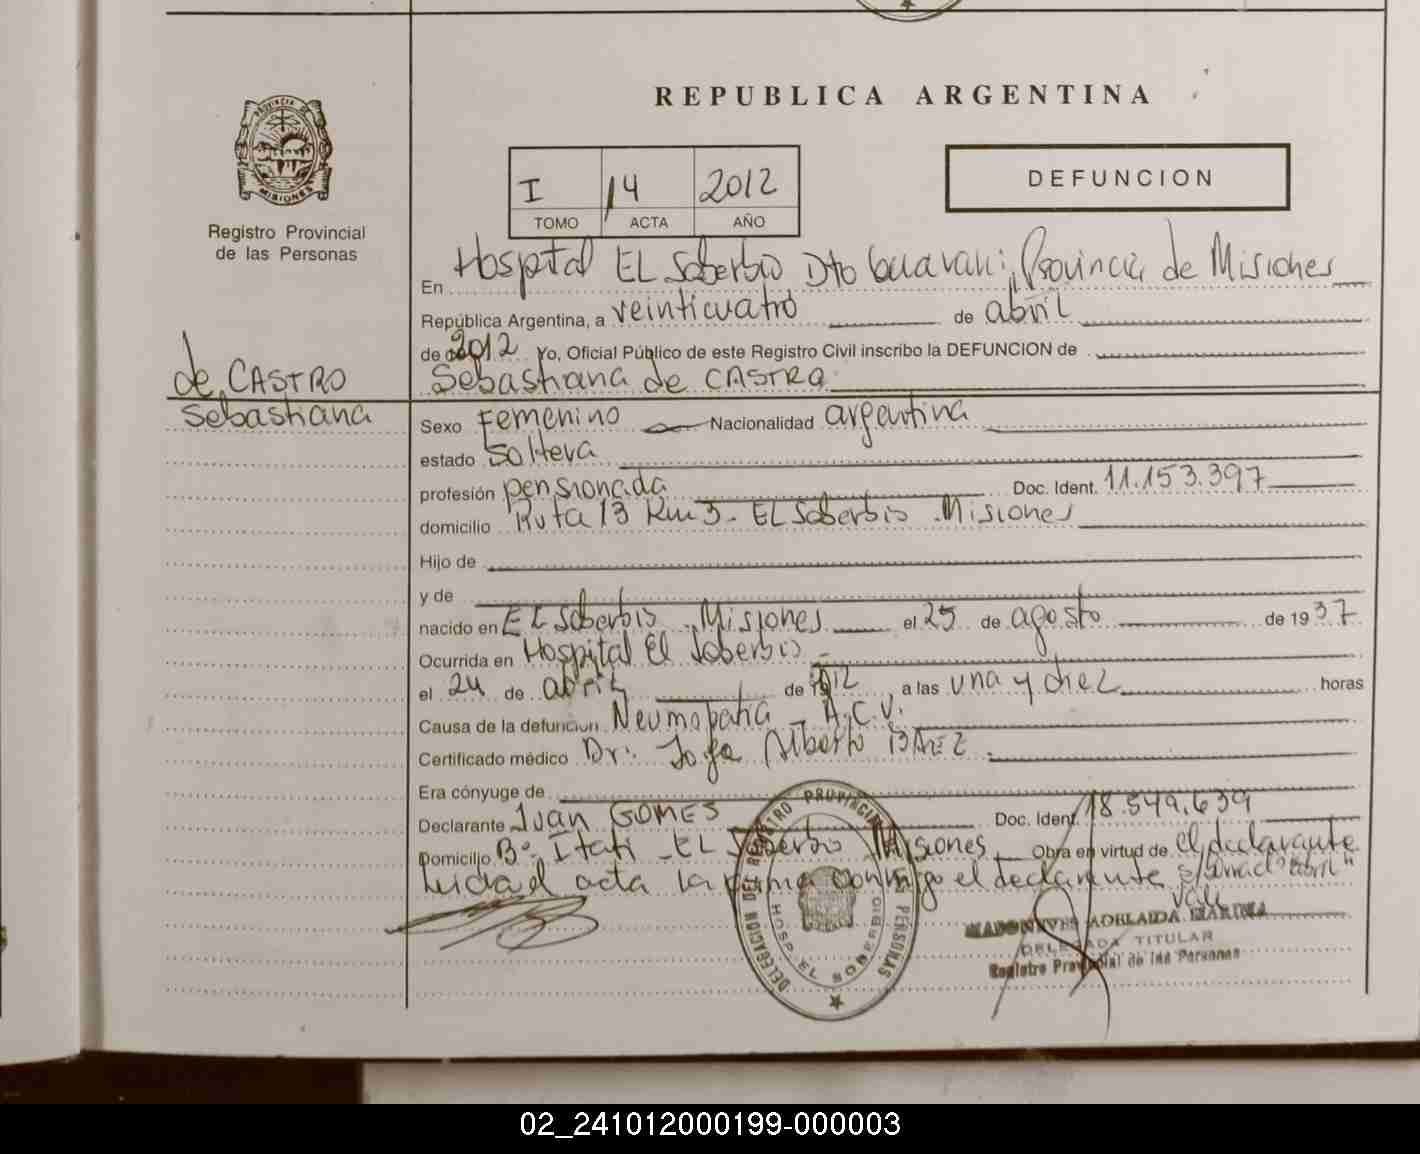 REPUBLICA ARGENTINA
PROVINCIA DE
MISIONES
Registro Provincial
de las Personas
I 14 2012
TOMO ACTA AÑO
DEFUNCION
En Hospital EL Soberbio Dto Guarani, Provincia de Misiones
República Argentina, a veinticuatro de abril
de 2012 Yo, Oficial Público de este Registro Civil inscribo la DEFUNCION de
de CASTRO
Sebastiana de CASTRO
Sebastiana
Sexo Femenino Nacionalidad argentina
estado Soltera
profesión pensionada Doc. Ident. 11.153.397
domicilio Ruta 13 Km 3 - EL Soberbio - Misiones
Hijo de
y de
nacido en EL Soberbio - Misiones el 25 de agosto de 1937
Ocurrida en Hospital El Soberbio -
el 24 de abril de 2012, a las una y diez horas
Causa de la defunción Neumopatia - A.C.V.
Certificado médico Dr: Alberto
Era cónyuge de
Declarante Juan GOMES Doc. Ident. 18.549.639
Domicilio B° Itati - EL Soberbio Misiones Obra en virtud de el declarante
Leida el acta la firma conmigo el declarante "abril"
Vale
ADELAIDA MARINA
DELEGADA TITULAR
Registro Provincial de las Personas
DELEGACION DEL REGISTRO PROVINCIAL PERSONAS
HOSP. EL SOBERBIO
02_241012000199-000003